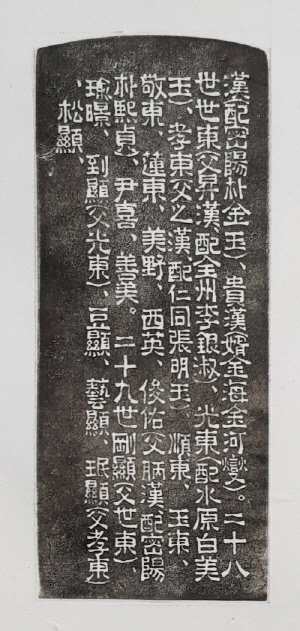 漢配密陽朴金玉)、貴漢(婿金海金河燮)。二十八
世世東父昇漢配全州李銀淑)、光東配水原白美
玉)、孝東父之漢、配仁同張明玉)、順東、玉東、
敬東、蓮東、美野、西英、俊佑父炳漢配密陽
朴熙貞)、尹喜、善美。二十九世剛顯父世東)、
瑜暻、到顯(父光東)、豆顯、藝顯、珉顯(父孝東)
、松顯、